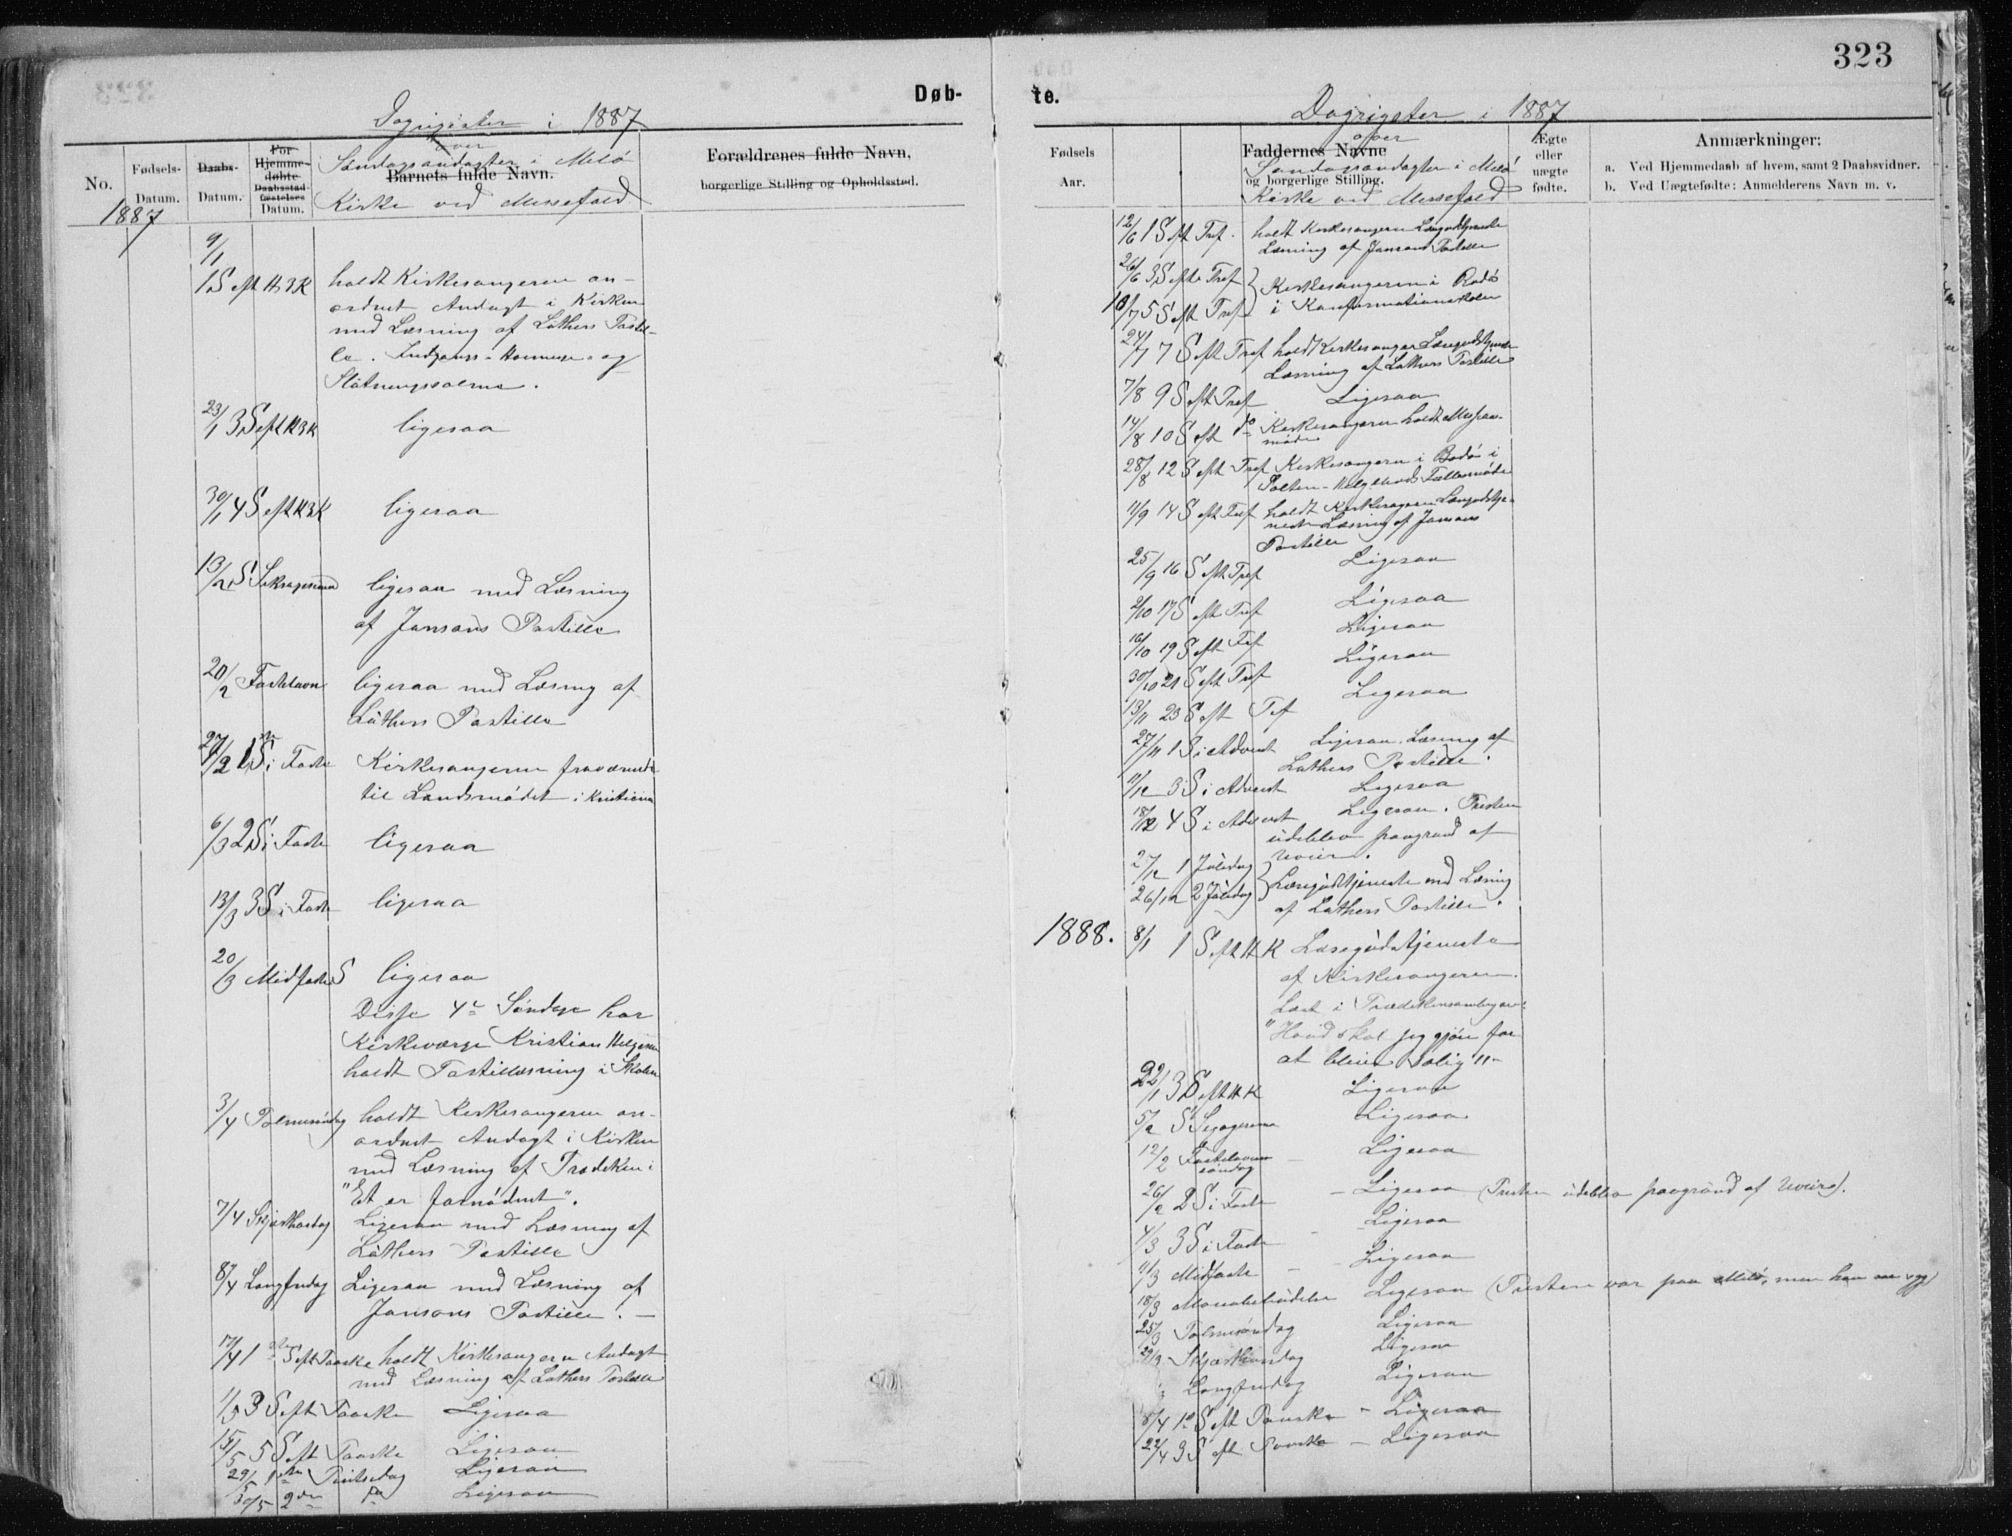 Døb-
Dagrigister i 1887
over
No.
Fødsels-
Datum.
Daabs-
Datum.
For
Hjemme-
døbte
Daabsstad-
fæstelses
Datum.
Søndagsandagter i Melö
Barnets fulde Navn.
Kirke ved Messefald
Forældrenes fulde Navn,
borgerlige Stilling og Opholdssted.
1887
9/1
1 S eft H 3 K holdt Kirkesangeren an-
ordnet Andagt i Kirken
med Læsning af Luthers Postil-
le. Indgangs- Hovmesse- og
Slutningssalme.
23/1 3 S eft H 3 K ligesaa
30/1 4 S eft H 3 K ligesaa
13/2 S Seksagesima ligesaa med Læsning
af Jansons Postille
20/2 Fastelavn ligesaa med Læsning af
Luthers Postille
27/2 1 S i Faste Kirkesangeren fraværende
til Landsmødet i Kristiania
6/3 2 S i Faste ligesaa
13/3 3 S i Faste ligesaa
20/3 Midfaste S ligesaa
Disse 4 Søndage har
Kirkeværge Kristian Helgesen
holdt Postillæsning i Skolen
3/4 Palmesøndag holdt Kirkesangeren an-
ordnet Andagt i Kirken
med Læsning af Prædiken i
"Et er fornødent".
7/4 Skjærthorsdag Ligesaa med Læsning af
Luthers Postille
8/4 Langfredag Ligesaa med Læsning af
Jansons Postille. —
17/4 1 S eft Paaske holdt Kirkesangeren Andagt
med Læsning af Luthers Postille
1/5 3 S eft Paaske Ligesaa
15/5 5 S eft Paaske Ligesaa
29/5 1ste Pintsedag Ligesaa
30/5 2den Do Ligesaa
te.
323
Dagrigster i 1887
over
Fødsels
Aar.
Faddernes Navne
Søndagsandagter i Melö
og borgerlige Stilling.
Kirke ved Messefald
Ægte
eller
uægte
fødte.
Anmærkninger:
a. Ved Hjemmedaab af hvem, samt 2 Daabsvidner.
b. Ved Uægtefødte: Anmelderens Navn m. v.
12/6 1 S eft Tref. holdt Kirkesangeren Læsegudstjeneste
Læsning af Jansons Postille
26/6 3 S eft Tref Kirkesangeren i Rødö
10/7 5 S eft Tref i Konfirmationsskolen
24/7 7 S eft Tref holdt Kirkesanger Læsegudstjeneste
Læsning af Luthers Postille
7/8 9 S eft Tref Ligesaa
14/8 10 S eft do Kirkesangeren holdt Misjons-
møde
28/8 12 S eft Tref Kirkesangeren i Bodö i
Salten - Helgelands Fællesmøde
11/9 14 S eft Tref holdt Kirkesangeren Læsegudstje-
neste Læsning af Jansons
Postille
25/9 16 S eft Tref Ligesaa
2/10 17 S eft Tref Ligesaa
16/10 19 S eft Tref Ligesaa
30/10 21 S eft Tref Ligesaa
13/11 23 S eft Tref Ligesaa
27/11 1 S i Advent Ligesaa. Læsning af
Luthers Postille.
11/12 3 S i Advent Ligesaa
18/12 4 S i Advent Ligesaa. Presten
udeblev paagrund af
Uveir.
1 Juledag
26/12 2 Juledag Læsegudstjeneste med Læsning
af Luthers Postille.
1888.
8/1 1 S eft H K Læsegudstjeneste
af Kirkesangeren.
Læst i Prædikensamlingen:
"Hvad skal jeg gjøre for
at blive salig"
22/1 3 S eft H K Ligesaa
5/2 S Segagesima Ligesaa
12/2 Fastelavns
søndag — Ligesaa
26/2 2 S i Faste — Ligesaa (Presten udeblev paagrund af Uveir).
4/3 3 S i Faste — Ligesaa
11/3 Midfaste — Ligesaa
18/3 Mariæbebudelse Ligesaa (Presten var paa Melö, men han var syg)
25/3 Palmesøndag Ligesaa
29/3 Skjærthorsdag Ligesaa
Langfredag Ligesaa
8/4 1 S eft Paaske — Ligesaa
22/4 3 S eft Paaske — Ligesaa